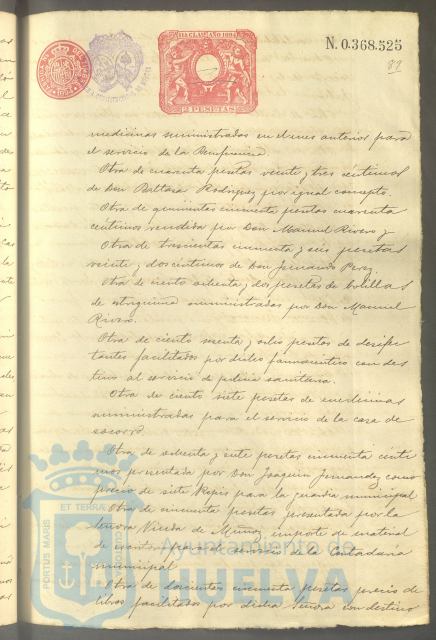 11A CLASE AÑO 1894
2 PESETAS
N. 0.368.525
89
medicinas suministradas en el mes anterior para
el servicio de la Beneficencia.
Otra de cuarenta pesetas veinte y tres céntimos
de Don Baltasar Rodriguez por igual concepto.
Otra de quinientas cincuenta pesetas cuarenta
céntimos rendida por Don Manuel Rivero y
Otra de trescientas cincuenta y seis pesetas
veinte y dos céntimos de Don Fernando Perez.
Otra de ciento ochenta y dos pesetas de bolillas
de estrignina suministradas por Don Manuel
Rivero.
Otra de ciento y ocho pesetas de desinfec
tantes facilitados por dicho farmaceutico con des
tino al servicio de policia sanitaria.
Otra de ciento siete pesetas de medicinas
suministradas para el servicio de la casa de
socorro.
Otra de ochenta y siete pesetas cincuenta cénti
mos presentada por Don Joaquin Fernandez como
precio de siete Kepis para la guardia municipal
Otra de cincuenta pesetas presentada por la
Señora Viuda de Muñoz importe de material
de para el servicio de la Contaduria
municipal
Otra de doscientas cincuenta pesetas precio de
libros facilitados por dicha Señora con destino
PORTUS MARIS
ET TERRAE
CUSTODIA
Ayuntamiento de
HUELVA